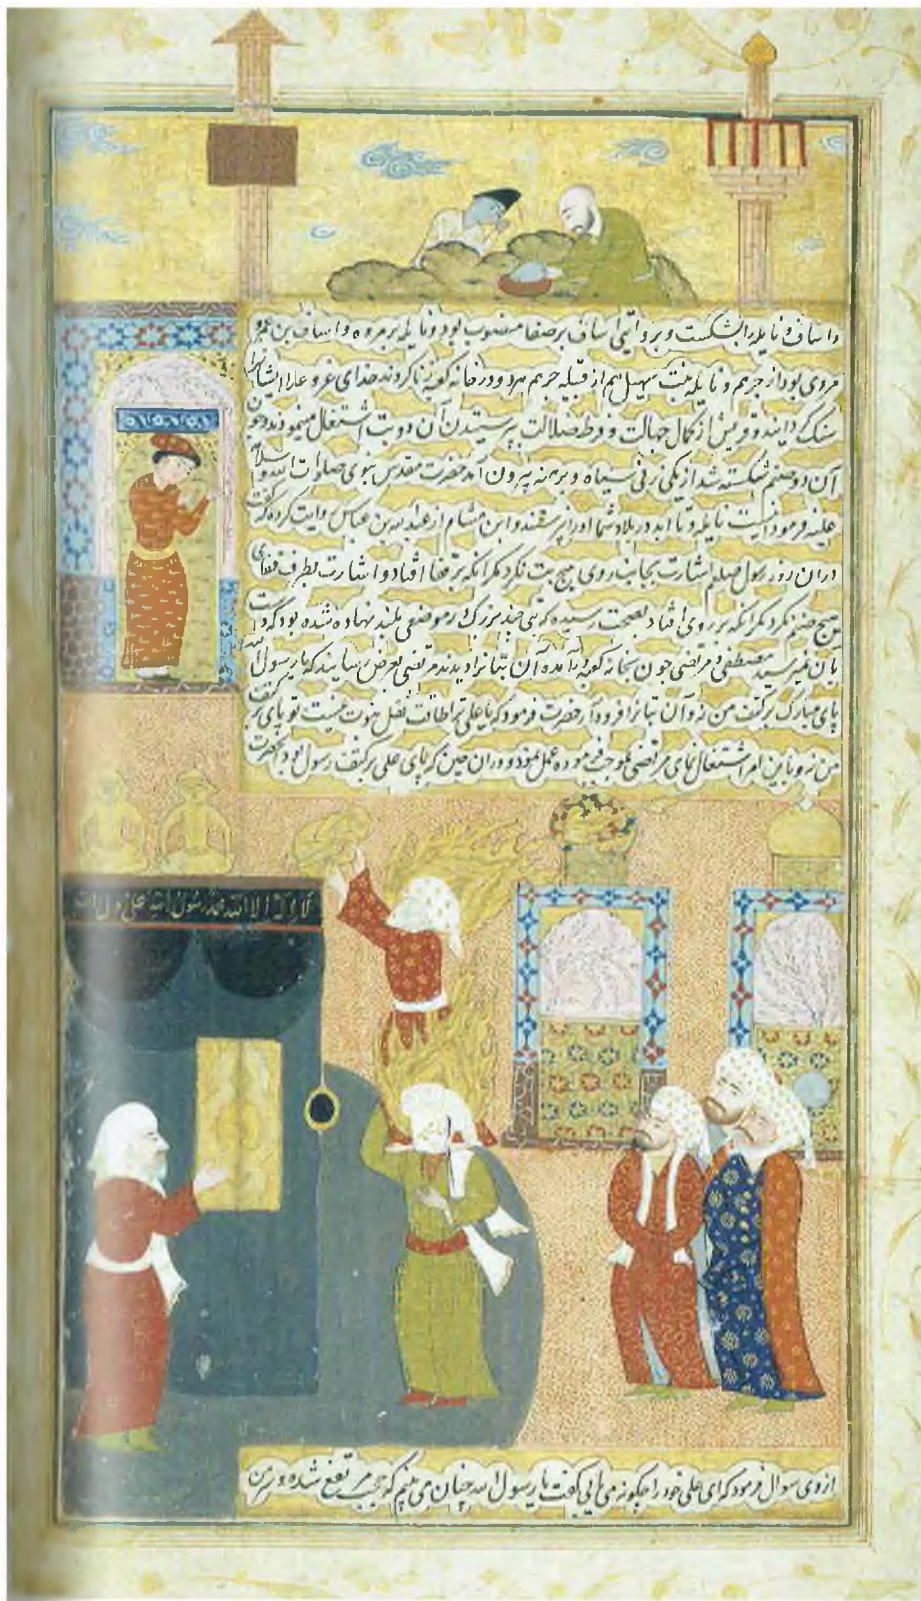 و اساف و نایله را بشکست و بروایتی اساف بر صفا منصوب بود و نایله بر مروه و اساف بن عمرو
مردی بود از جرهم و نایله بنت سهیل هم از قبیله جرهم هردو در خانه کعبه زنا کردند خدای عز و علا ایشانرا
سنک کردانید و قریش از کمال جهالت و فرط ضلالت بپرستیدن آن دو بت اشتغال مینمودند و چون
آن دو صنم شکسته شد از یکی زنی سیاه و برهنه بیرون آمد حضرت مقدس نبوی صلوات الله و سلامه
علیه فرمود اینست نایله و تا ابد در بلاد شما اورا نپرستند و ابن هشام از عبدالله بن عباس روایت کرده که گفت
دران روز رسول صلعم اشارت بجانب روی هیچ بت نکرد مکر انکه بر قفا افتاد و اشارت بطرف قفای
هیچ صنم نکرد مکر انکه بر روی افتاد بصحت رسیده که بتی چند بزرک در موضعی بلند نهاده شده بود که دست
بان نمیرسید مصطفی و مرتضی چون بخانه کعبه درآمده آن بتانرا دیدند مرتضی بعرض رسانید که یا رسول الله
پای مبارک بر کتف من نه و آن بتانرا فرود آر حضرت فرمود که یا علی ترا طاقت ثقل نبوت نیست تو پای بر کتف
من نه و باین امر اشتغال نمای مرتضی بموجب فرموده عمل نمود و دران حین که پای علی بر کتف رسول بود آنحضرت
لا اله الا الله محمد رسول الله علی ولی الله
از وی سوال فرمود که ای علی خود را چکونه می یابی گفت یا رسول الله چنان می بینم که حجب مرتفع شده و سر من